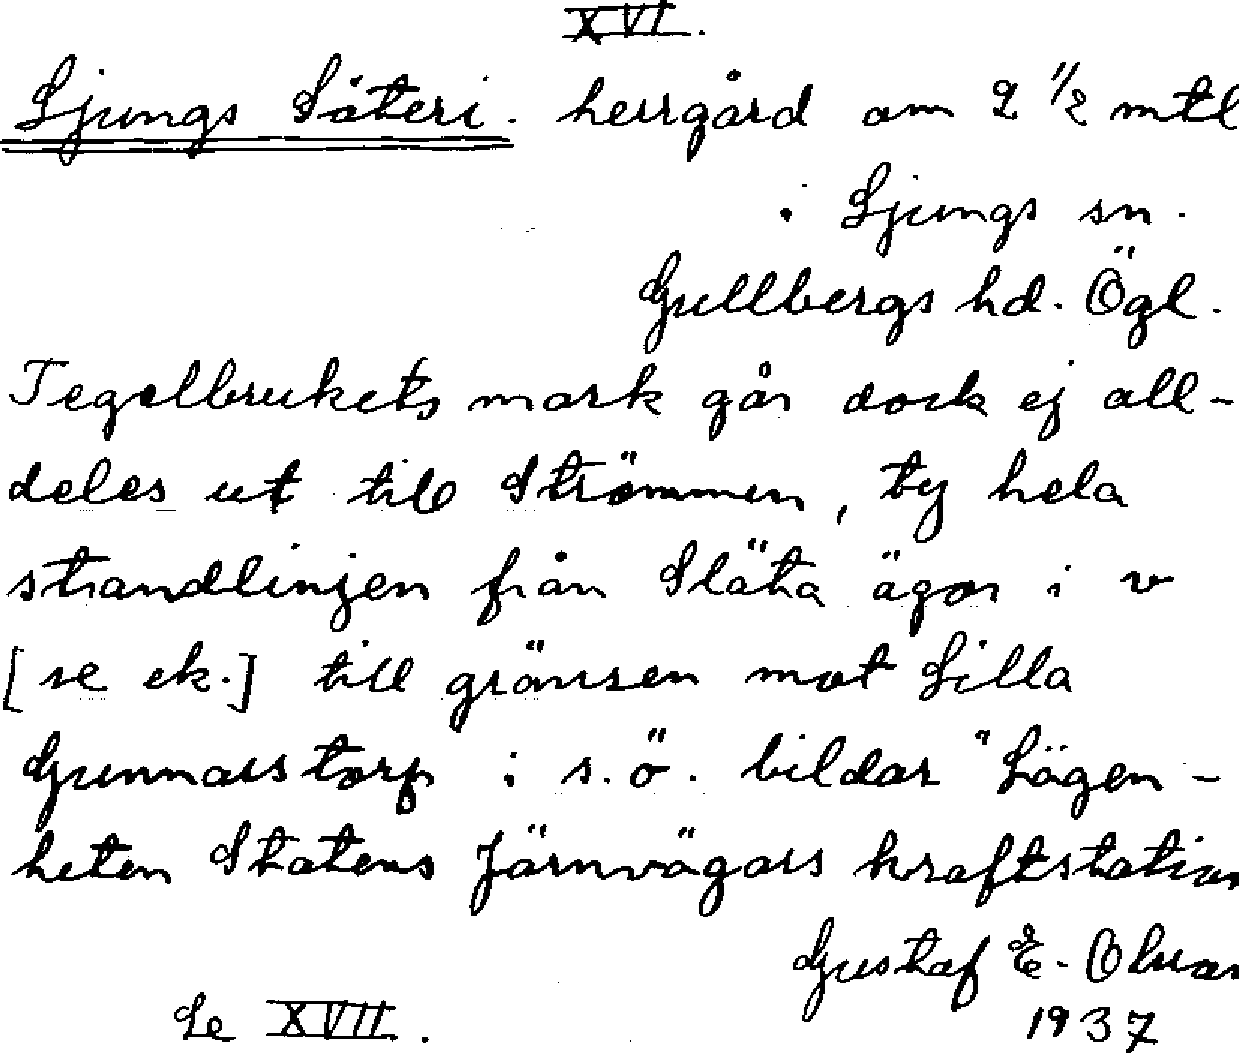 XVI.
Ljungs Säteri. herrgård om 2 1/2 mtl
i Ljungs sn.
Gullbergs hd. Ögl.
Tegelbrukets mark går dock ej all-
deles ut till Strömmen, ty hela
strandlinjen från Släta ägor i v
[se ek.] till gränsen mot Lilla
Gunnarstorp i s.ö. bildar "Lägen-
heten Statens Järnvägars kraftstation
Gustaf E. Olsson
1937
Se XVII.